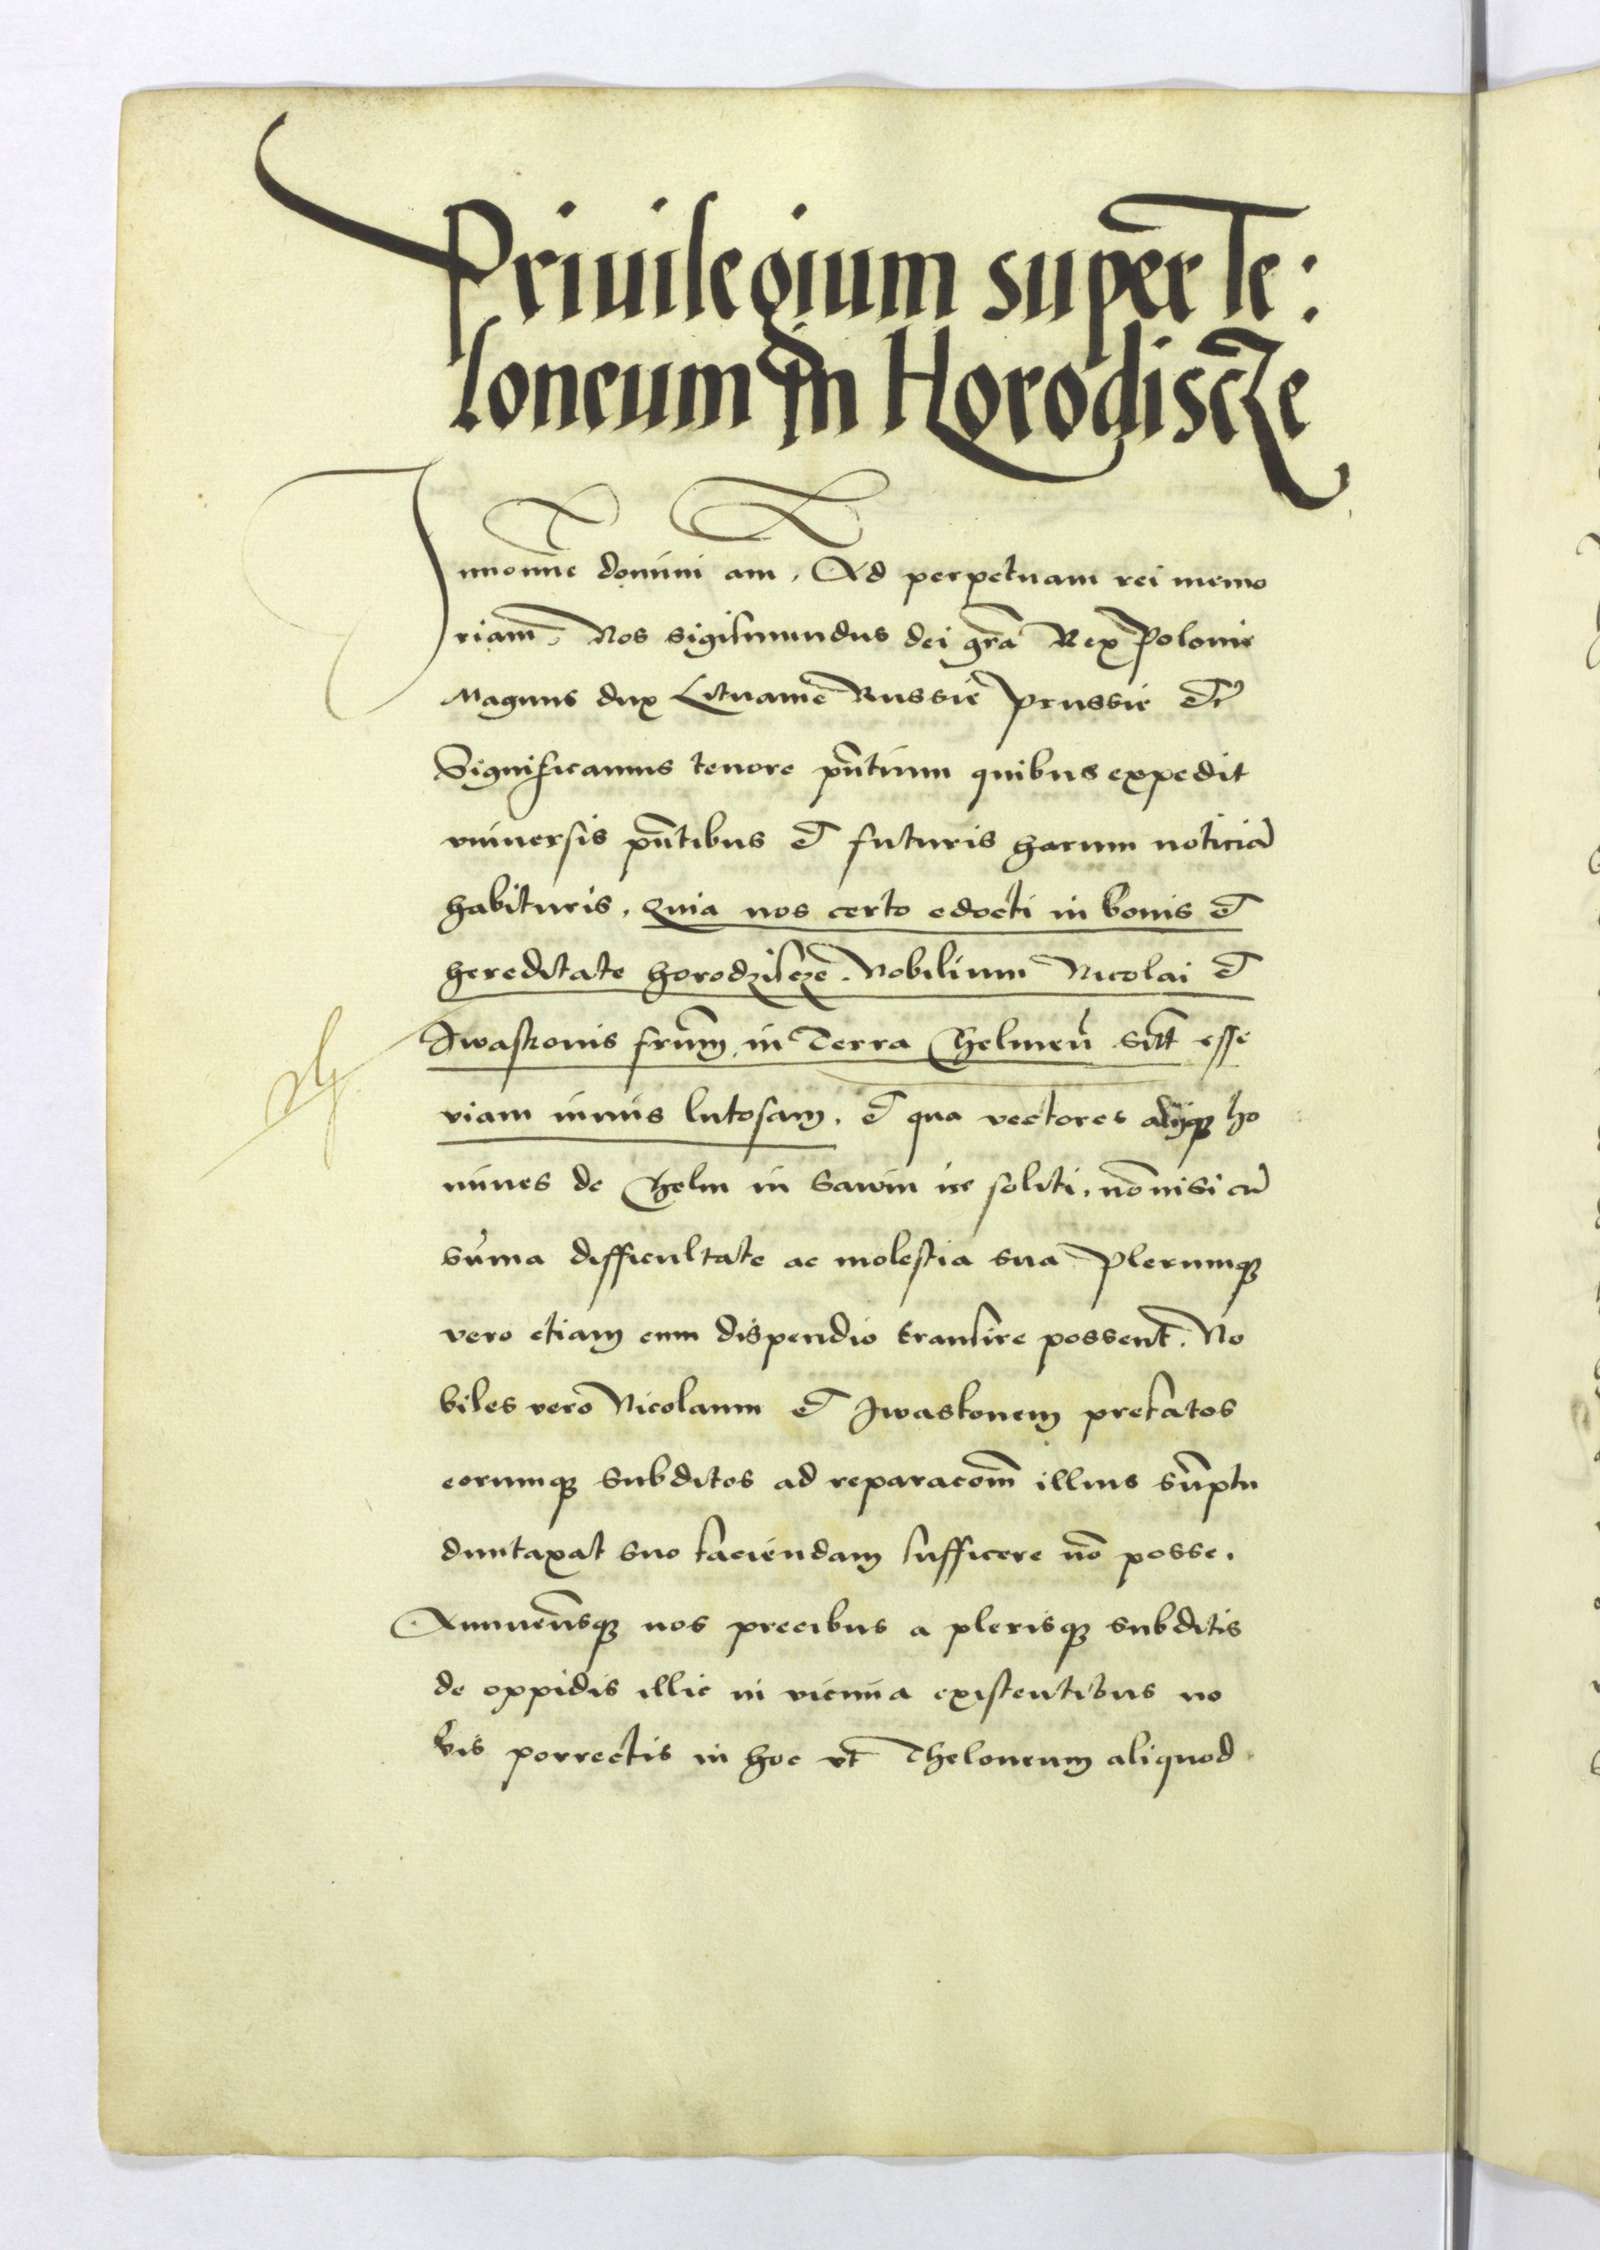 Priuilegium super Te:
loneum in Horodiscze
In noīe domini am. Ad perpetuam rei memo
riam. Nos Sigismundus dei gra͠ Rex Polonie
Magnus dux Lituanie Russie Prussie etc͠
Significamus tenore pn͠tium quibus expedit
vniuersis pn͠tibus et futuris harum noticia͠
habituris. Quia nos certo edocti in bonis et
hereditate horodziscze Nobilium Nicolai et
Iwaskonis fru͠m in Terra Chelmen͠ sitt͠ esse
viam nimis lutosam. et qua vectores alijq; ho
mines de Chelm in Sawin ire soliti. no͠ nisi cu͠
su͠ma difficultate ac molestia sua Plerumq;
vero etiam cum dispendio transire possent. No
biles vero Nicolaum et Iwaskonem prefatos
eorumq; subditos ad reparaco͠m illius su͠ptu
duntaxat suo faciendam sufficere no͠ posse.
Annuen͠sq; nos precibus a plerisq; subditis
de oppidis illic in vicinia existentibus no
bis porrectis in hoc vt Theloneum aliquod